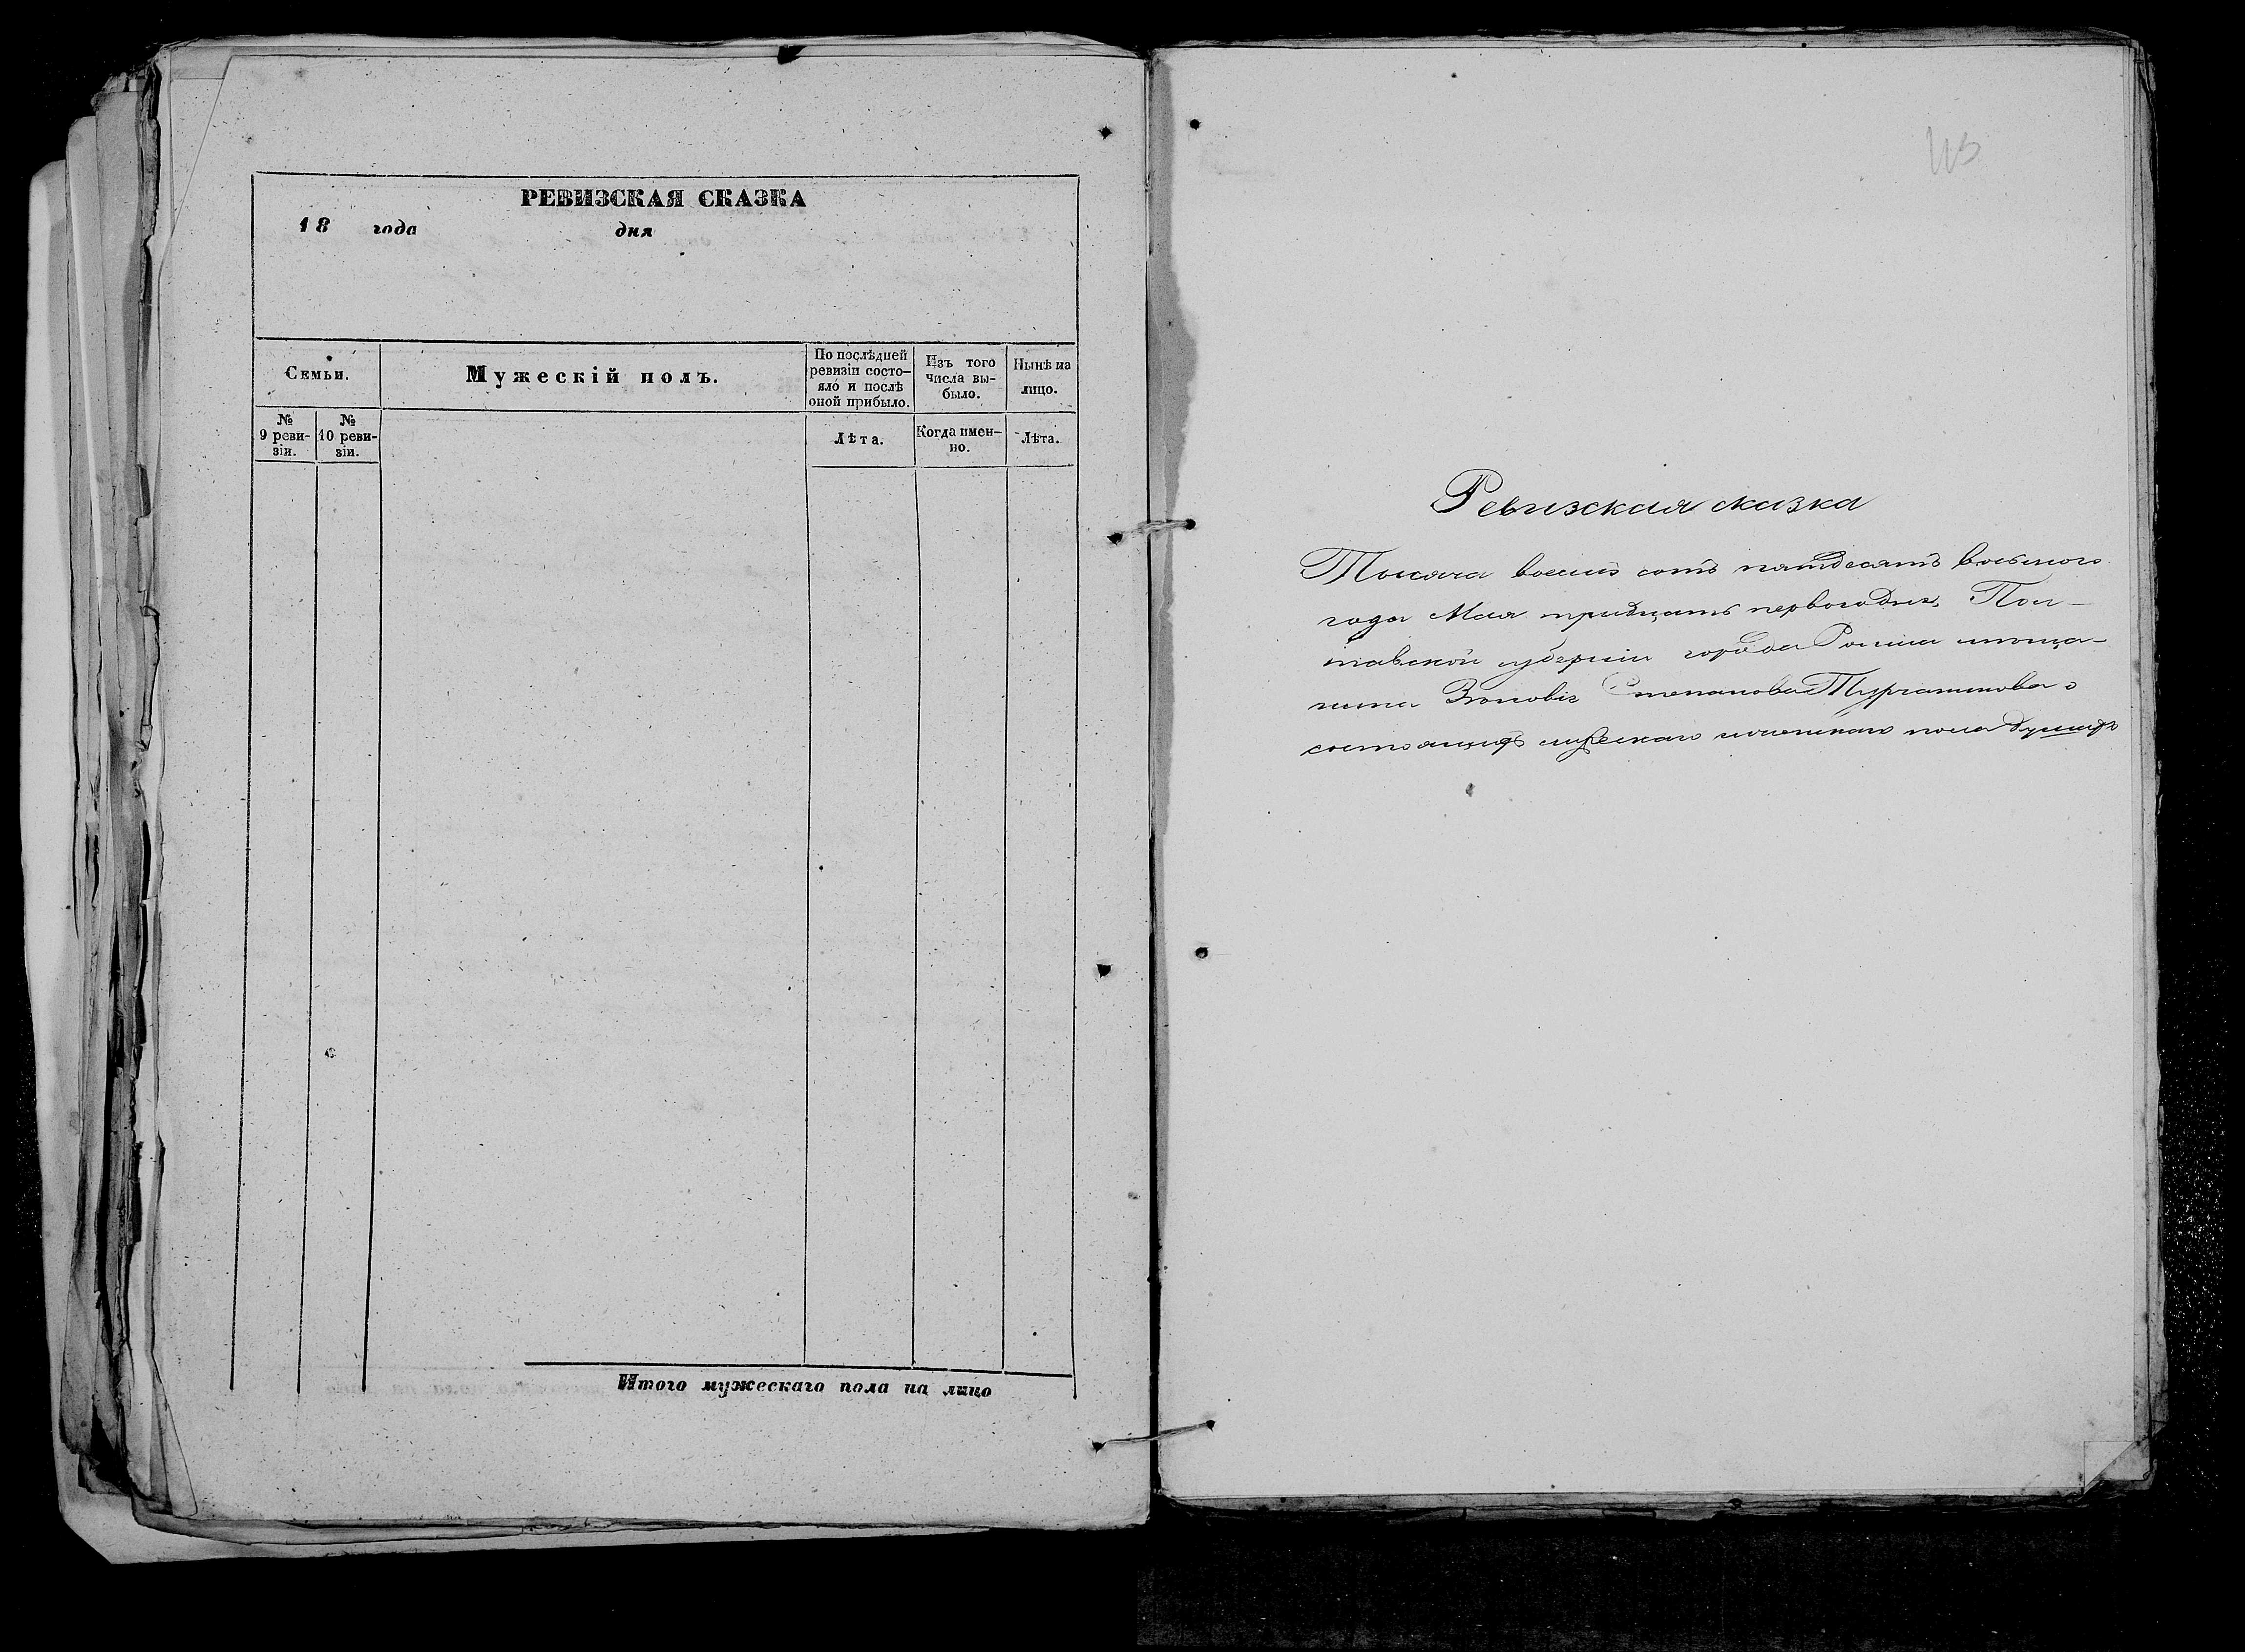 РЕВИЗСКАЯ СКАЗКА
18 года дня
Семьи.
Мужескій полъ.
По послѣдней
ревизіи состо-
яло и послѣ
оной прибыло.
Изъ того
числа вы-
было.
Нынѣ на
лицо.
№
9 реви-
зіи.
№
10 реви-
зіи.
Лѣта.
Когда имен-
но.
Лѣта.
Итого мужескаго пола на лицо
113
Ревизская сказка
Тысяча восемь сотъ пятдесятъ восьмого
года Мая тридцать первого дня, Пол-
тавской губерніи города Ромна мѣща-
нина Степанова о
состоящихъ мужскаго и женскаго пола душахъ